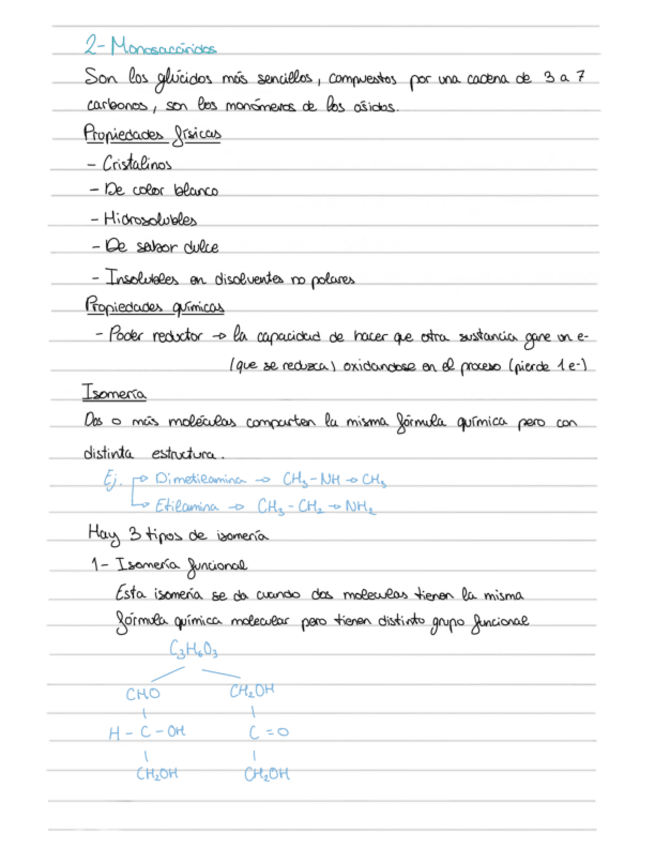 2- Monosacáridos
Son los glúcidos más sencillos, compuestos por una cadena de 3 a 7
carbonos, son los monómeros de los ósidos.
Propiedades físicas
- Cristalinos
- De color blanco
- Hidrosolubles
- De sabor dulce
- Insolubles en disolventes no polares
Propiedades químicas
- Poder reductor → la capacidad de hacer que otra sustancia gane un e-
(que se reduzca) oxidandose en el proceso (pierde 1 e-)
Isomería
Dos o más moléculas comparten la misma fórmula química pero con
distinta estructura.
Ej. → Dimetilamina → CH₃ - NH → CH₃
→ Etilamina → CH₃ - CH₂ → NH₂
Hay 3 tipos de isomería
1- Isomería funcional
Esta isomería se da cuando dos moleculas tienen la misma
fórmula química molecular pero tienen distinto grupo funcional
C₃H₆O₃
CHO CH₂OH
H - C - OH C = O
CH₂OH CH₂OH